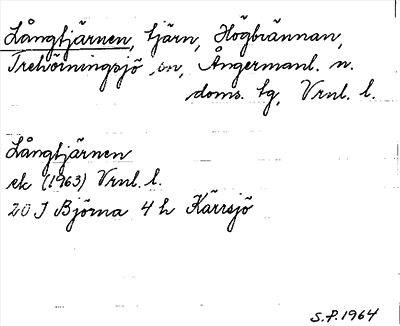 Långtjärnen, tjärn, Högbrännan,
Trehörningsjö sn, Ångermanl. n.
doms. tg, Vrnl. l.
Långtjärnen
ek (1963) Vrnl. l.
20 J Björna 4 h Kärrsjö
S.P. 1964